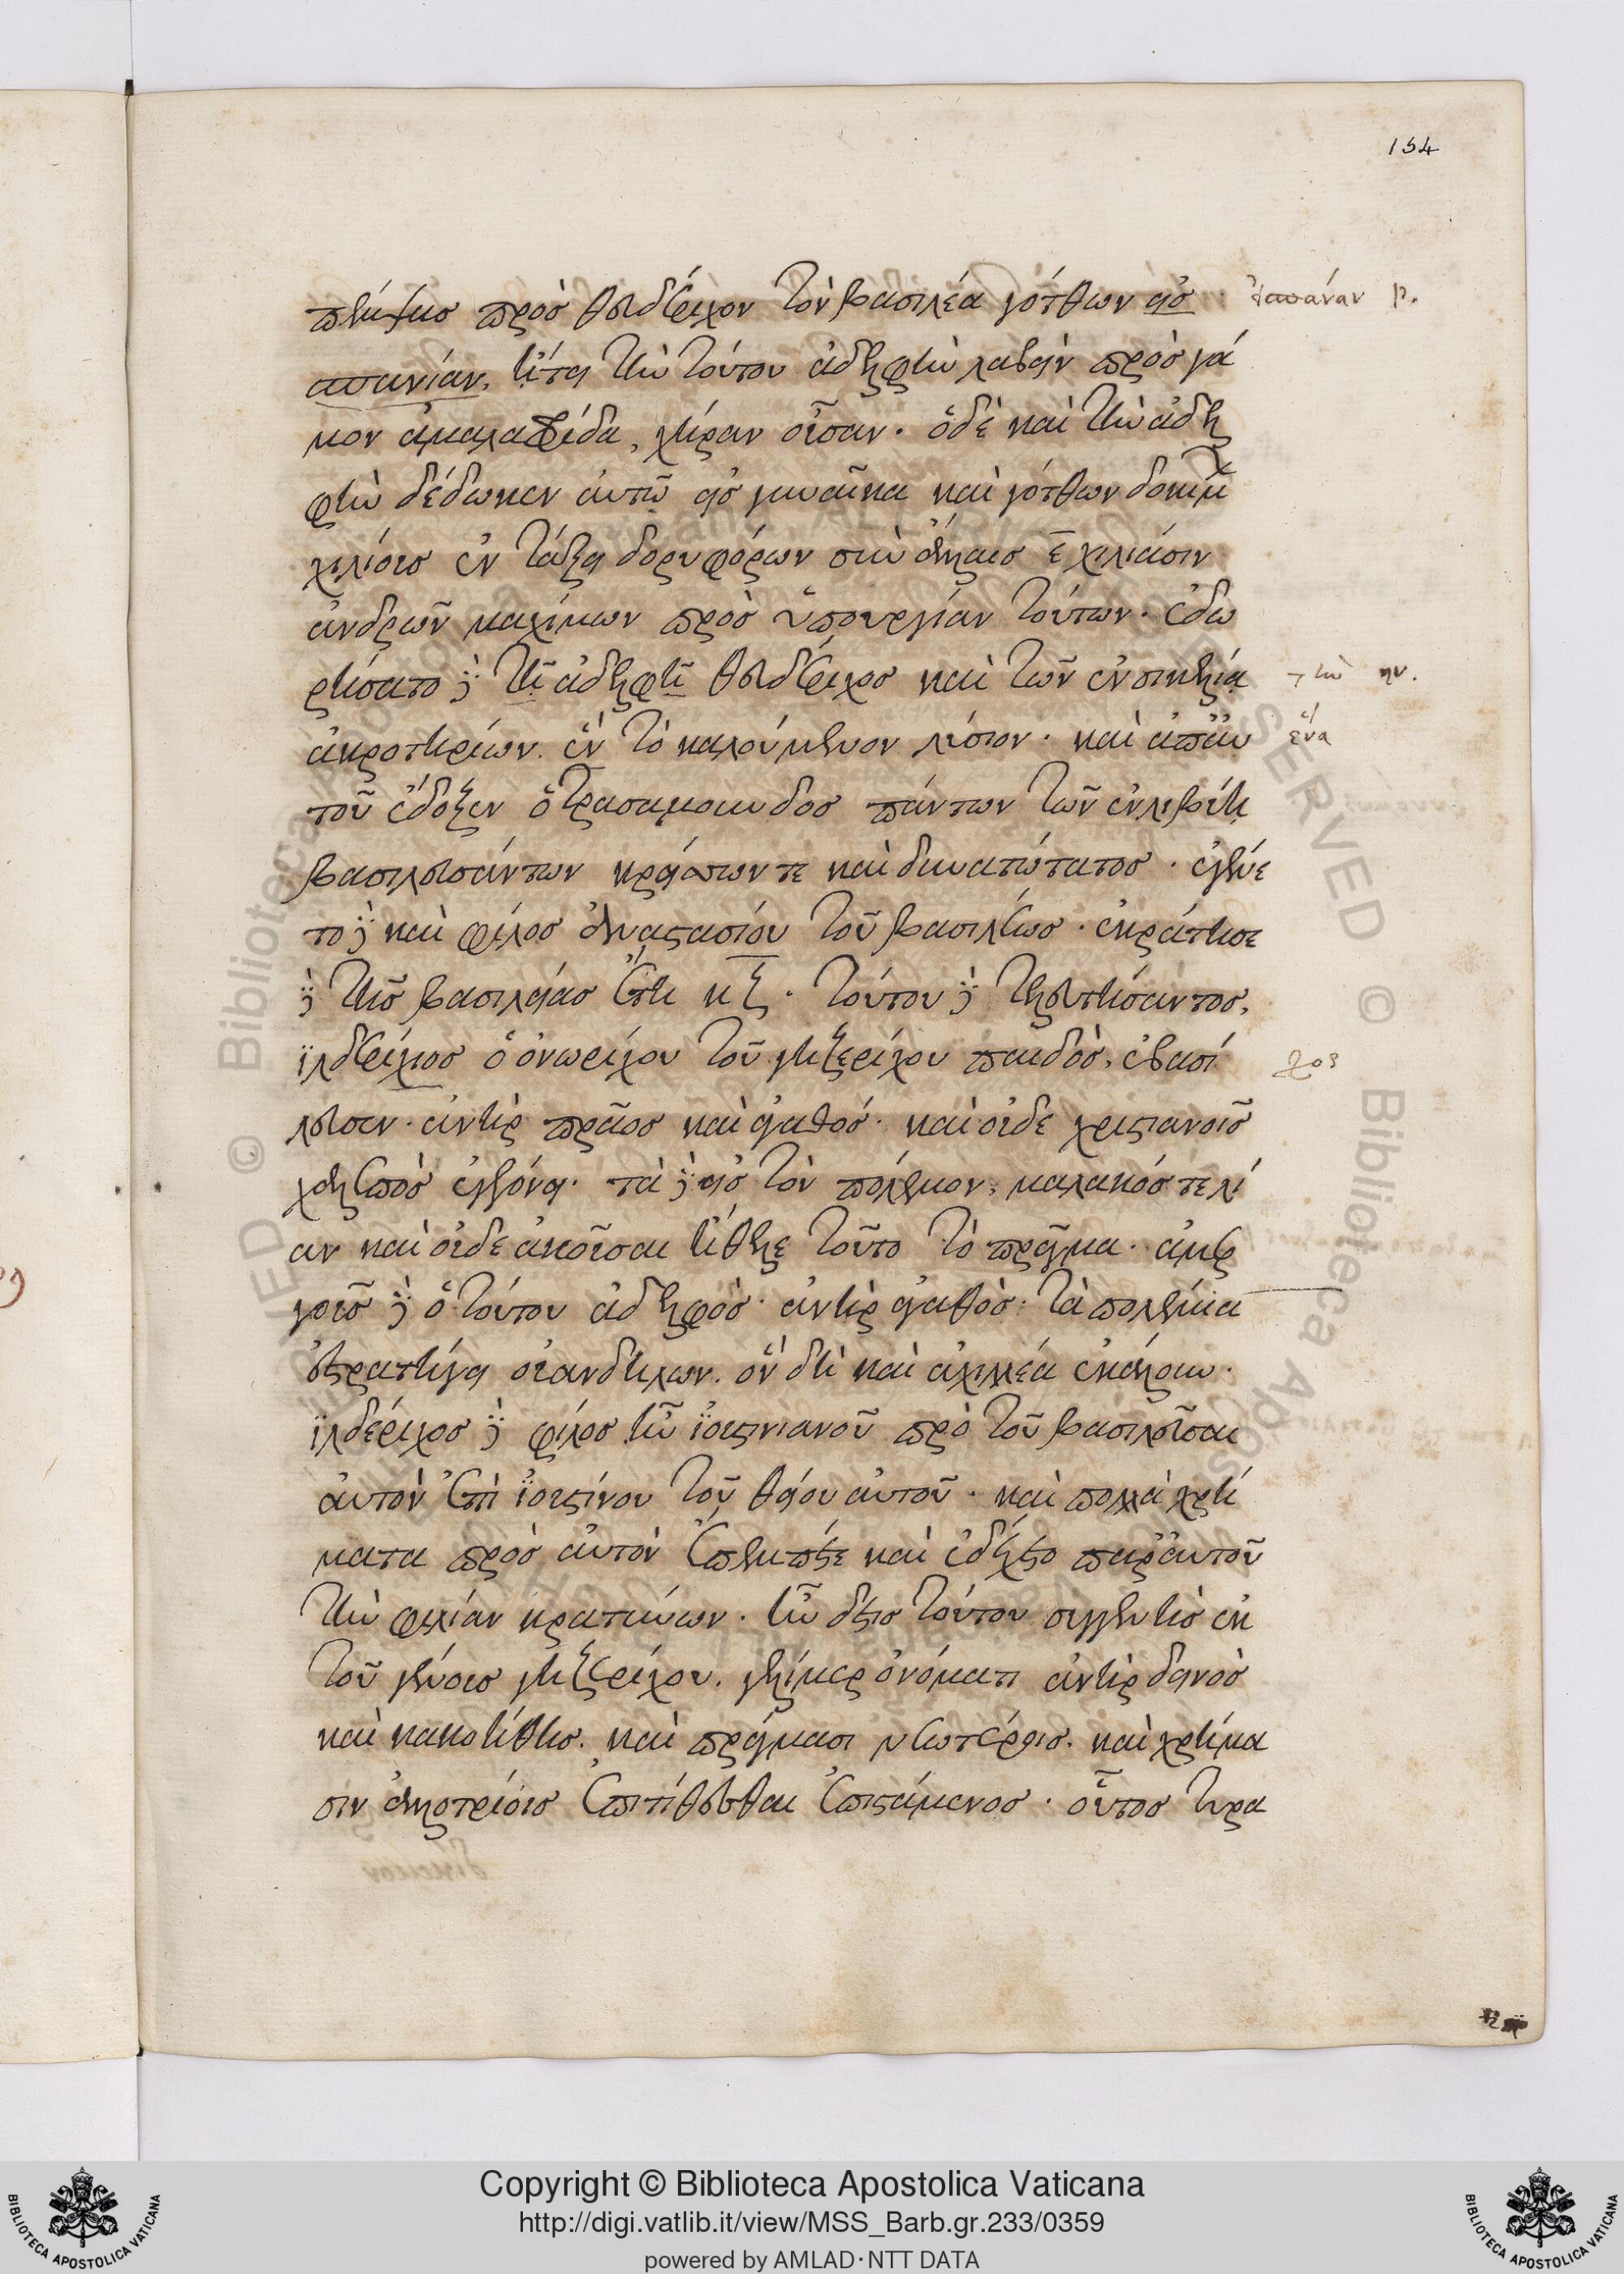 154
πέμψας πρὸς θευδέριχον τὸν βασιλέα γότθων εἰς
σπανίαν, ᾔτει τὴν τούτου ἀδελφὴν λαβεῖν πρὸς γά
μον ἀμαλαφρίδα, χήραν οὖσαν. ὁ δὲ καὶ τὴν ἀδελ
φὴν δέδωκεν αὐτῷ εἰς γυναῖκα καὶ γότθων δοκίμ
χιλίους ἐν τάξει δορυφόρων σὺν ἄλλαις ε χιλιάσιν
ἀνδρῶν μαχίμων πρὸς ὑπουργίαν τούτων. ἐδω
ρήσατο δὲ τῇ ἀδελφῇ θευδέριχος καὶ τῶν ἐν σικελίᾳ
ἀκροτηρίων. ἓν τὸ καλούμενον λύσιον. καὶ ἀπὸ
τοῦ ἔδοξεν ὁ τρασαμοῦνδος πάντων τῶν ἐν λιβύῃ
βασιλευσάντων κρείττων τε καὶ δυνατώτατος. ἐγένε
το δὲ καὶ φίλος ἀναστασίου τοῦ βασιλέως. ἐκράτησε
δὲ τῆς βασιλείας ἔτη κζ. τούτου δὲ τελευτήσαντος,
ἰλδέριχος ὁ ὀνωρίχου τοῦ γιζερίχου παιδὸς, ἐβασί
λευσεν. ἀνὴρ πρᾶος καὶ ἀγαθός. καὶ οὐδὲ χριστιανοῖς
χαλεπὸς ἐγεγόνει. τὰ δὲ εἰς τὸν πόλεμον, μαλακός τε λί
αν καὶ οὐδὲ ἀκοῦσαι ἤθελε τοῦτο τὸ πρᾶγμα. ἀμερ
γοῦς δὲ ὁ τούτου ἀδελφὸς. ἀνὴρ ἀγαθὸς. τὰ πολεμικὰ
ἐστρατήγει οὐανδήλων. ὃν δὴ καὶ ἀχιλλέα ἐκάλουν.
ἰλδέριχος δὲ φίλος ἦν ἰουστινιανοῦ πρὸ τοῦ βασιλεῦσαι
αὐτὸν ἐπὶ ἰουστίνου τοῦ θείου αὐτοῦ. καὶ πολλὰ χρή
ματα πρὸς αὐτὸν ἔπεμπέ τε καὶ ἐδέχετο παρ᾽ αὐτοῦ
τὴν φιλίαν κρατύνων. ἦν δέ τις τούτου συγγενὴς ἐκ
τοῦ γένους γιζερίχου. γελίμερ ὀνόματι ἀνὴρ δεινὸς
καὶ κακοήθης. καὶ πράγμασι νεωτέροις. καὶ χρήμα
σιν ἀλλοτρίοις ἐπιτίθεσθαι ἐπιστάμενος. οὗτος ὁρᾷ
τὴν
ἕνα
χος
Copyright © Biblioteca Apostolica Vaticana
http://digi.vatlib.it/view/MSS_Barb.gr.233/0359
powered by AMLAD·NTT DATA
BIBLIOTECA APOSTOLICA VATICANA
BIBLIOTECA APOSTOLICA VATICANA